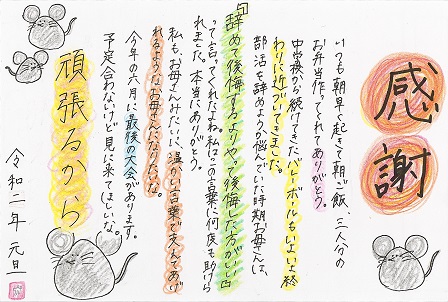 感謝
いつも朝早く起きて朝ご飯、三人分の
お弁当作ってくれてありがとう。
中学校から続けてきたバレーボールもいよいよ終
わりに近づいてきました。
部活を辞めようか悩んでいた時期お母さんは、
「辞めて後悔するよりやって後悔した方がいい」
って言ってくれたよね。私はこの言葉に何度も助けら
れました。本当にありがとう。
私もお母さんみたいに、温かい言葉で支えてあげ
れるようなお母さんになりたいな。
今年の六月に最後の大会があります。
予定合わないけど見に来てほしいな。
頑張るから
令和二年 元旦